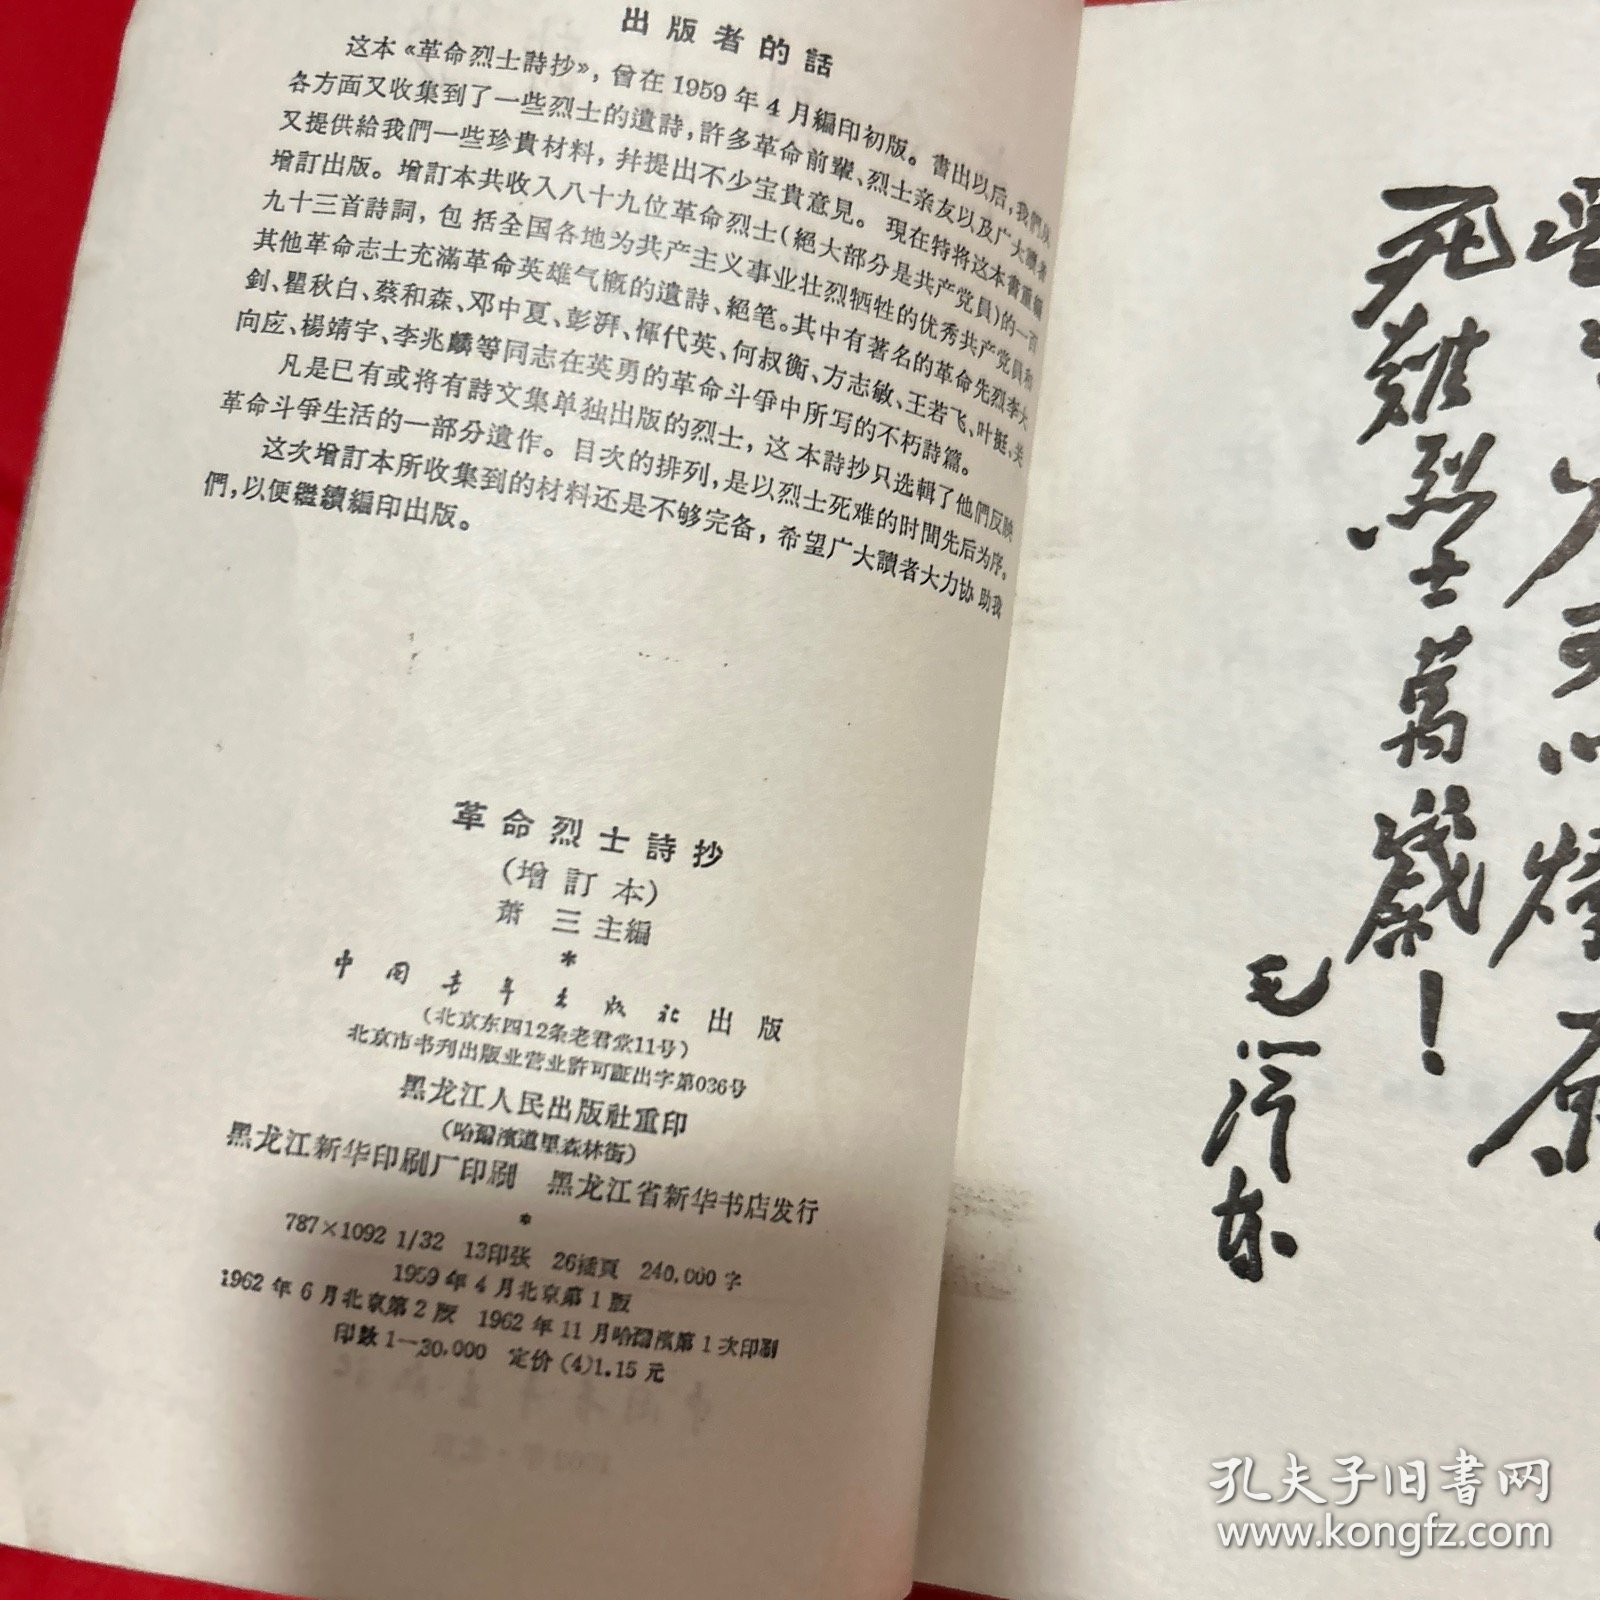 出版者的話
这本《革命烈士詩抄》，曾在1959年4月編印初版。書出以后，我們从
各方面又收集到了一些烈士的遺詩，許多革命前輩、烈士亲友以及广大讀者
又提供給我們一些珍貴材料，并提出不少宝貴意見。現在特将这本書重編
增訂出版。增訂本共收入八十九位革命烈士（絕大部分是共产党員）的一百
九十三首詩詞，包括全国各地为共产主义事业壮烈牺牲的优秀共产党員和
其他革命志士充滿革命英雄气概的遺詩、絕笔。其中有著名的革命先烈李大
釗、瞿秋白、蔡和森、邓中夏、彭湃、惲代英、何叔衡、方志敏、王若飞、叶挺、关
向应、楊靖宇、李兆麟等同志在英勇的革命斗爭中所写的不朽詩篇。
凡是已有或将有詩文集单独出版的烈士，这本詩抄只选輯了他們反映
革命斗爭生活的一部分遺作。目次的排列，是以烈士死难的时間先后为序。
这次增訂本所收集到的材料还是不够完备，希望广大讀者大力协助我
們，以便繼續編印出版。
革命烈士詩抄
（增訂本）
萧三主編
*
中国青年出版社出版
（北京东四12条老君堂11号）
北京市书刊出版业营业許可証出字第036号
黑龙江人民出版社重印
（哈爾濱道里森林街）
黑龙江新华印刷厂印刷 黑龙江省新华书店发行
*
787×1092 1/32 13印张 26插頁 240,000字
1959年4月北京第1版
1962年6月北京第2版 1962年11月哈爾濱第1次印刷
印数1—30,000 定价(4)1.15元
死难烈士萬歲！
毛泽东
孔夫子旧書网
www.kongfz.com